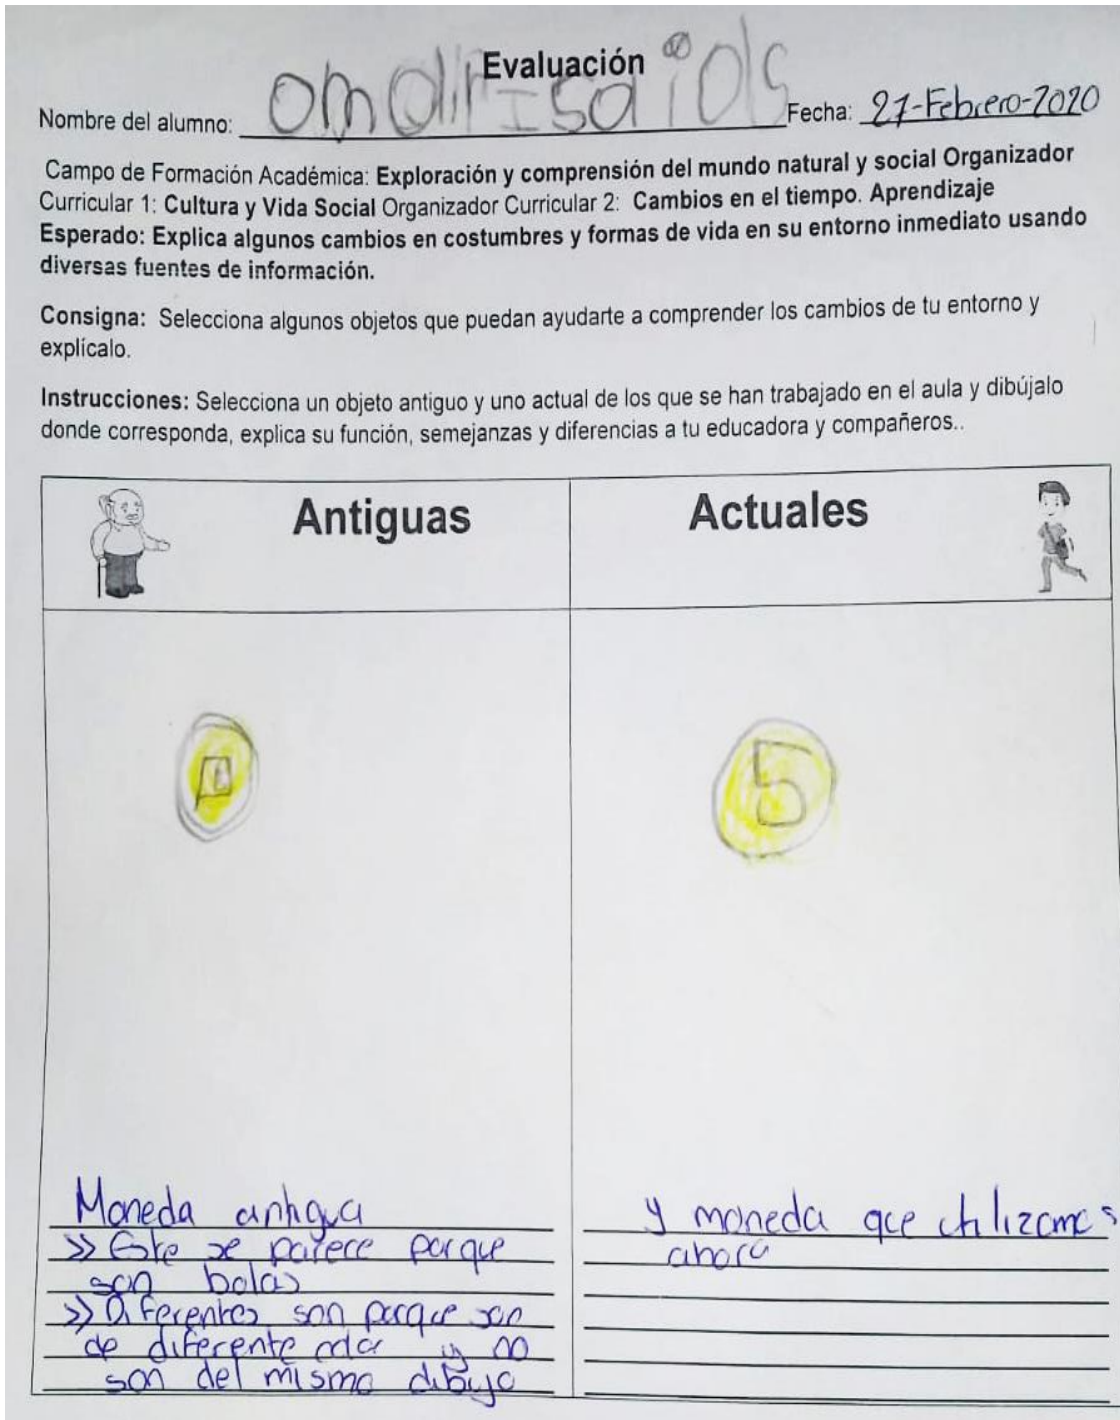 Evaluación
Nombre del alumno: Fecha: 27-Febrero-2020
Campo de Formación Académica: Exploración y comprensión del mundo natural y social Organizador
Curricular 1: Cultura y Vida Social Organizador Curricular 2: Cambios en el tiempo. Aprendizaje
Esperado: Explica algunos cambios en costumbres y formas de vida en su entorno inmediato usando
diversas fuentes de información.
Consigna: Selecciona algunos objetos que puedan ayudarte a comprender los cambios de tu entorno y
explícalo.
Instrucciones: Selecciona un objeto antiguo y uno actual de los que se han trabajado en el aula y dibújalo
donde corresponda, explica su función, semejanzas y diferencias a tu educadora y compañeros..
Antiguas
Actuales
5
Moneda antigua
>> Este se parece porque
son bolas
>> Diferentes son porque son
de diferente color y no
son del mismo dibujo
y moneda que utilizamos
ahora